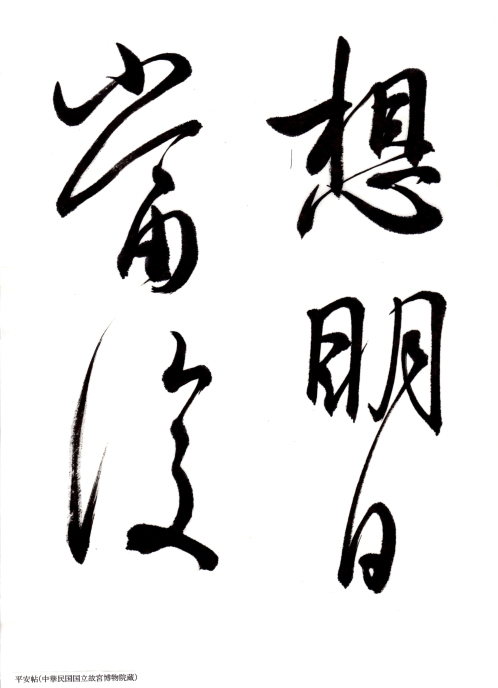 想明日
當復
平安帖(中華民国国立故宮博物院蔵)